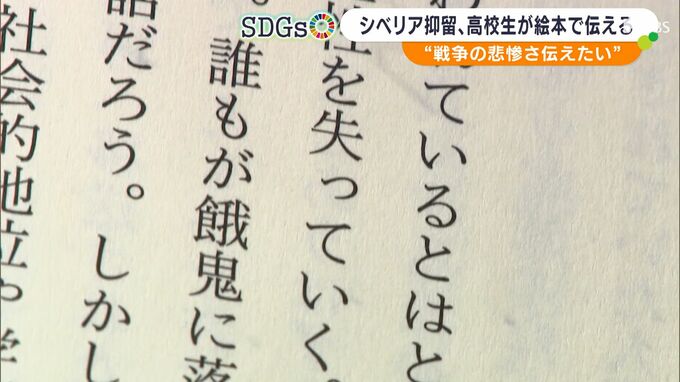 SDGs
シベリア抑留、高校生が絵本で伝える
“戦争の悲惨さ伝えたい”
ているとはと
性を失っていく。
。誰もが餓鬼に落
話だろう。しかし
社会的地立や学